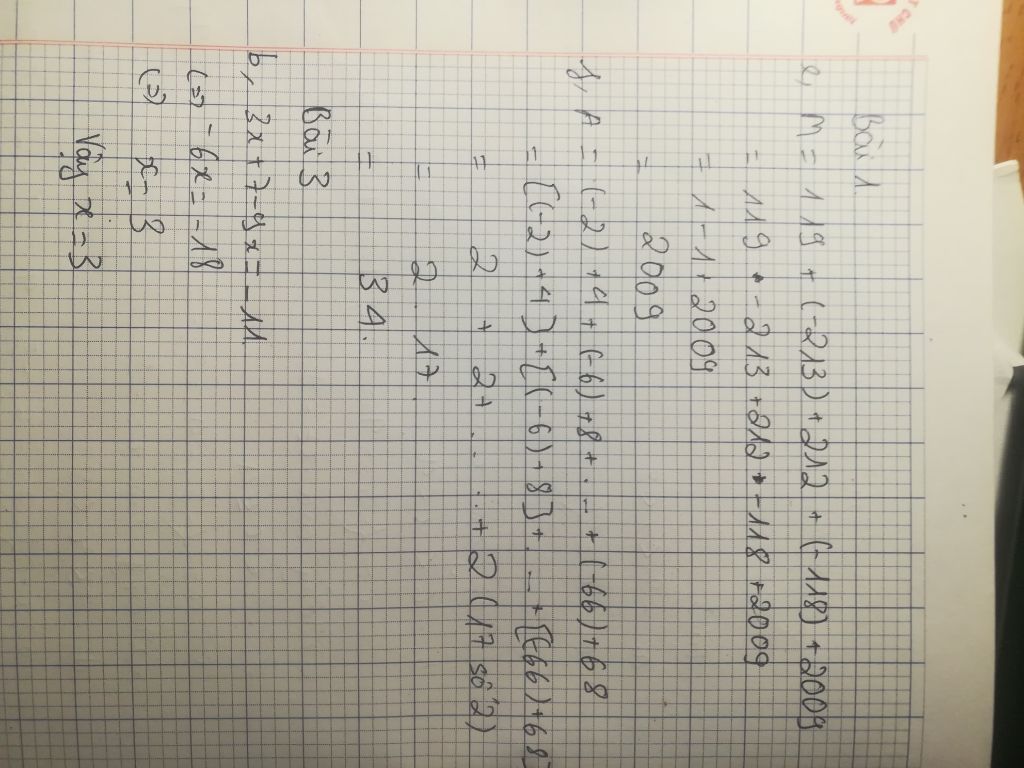 Bài 1
e, M = 119 + (-213) + 212 + (-118) + 2009
= 119 - 213 + 212 - 118 + 2009
= 1 - 1 + 2009
= 2009
f, A = (-2) + 4 + (-6) + 8 + . _ + (-66) + 68
= [(-2) + 4] + [(-6) + 8] + . _ + [(-66) + 68]
= 2 + 2 + . . . . + 2 (17 số 2)
= 2 . 17
= 34.
Bài 3
b, 3x + 7 - 9x = -11
(=) -6x = -18
(=) x = 3
Vậy x = 3